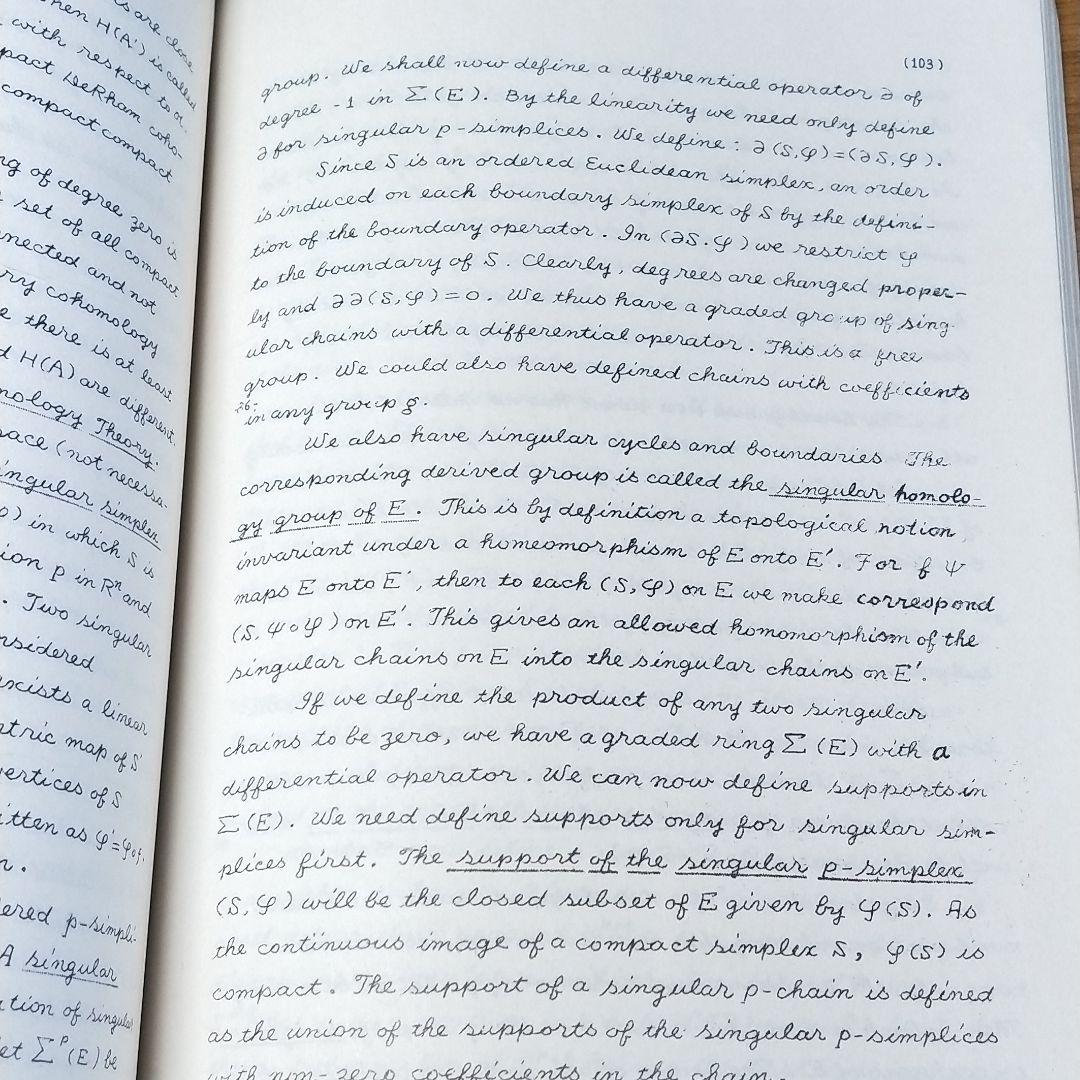 is are close
hen H(A') is called
with respect to α.
pact DeRham coho-
compact compact
ng of degree zero is
set of all compact
nnected and not
ry cohomology
e there is at least
d H(A) are different
nology Theory.
pace (not necessa-
ingular simplex
φ) in which S is
ion p in Rⁿ and
. Two singular
nsidered
exists a linear
etric map of S
vertices of S
itten as φ'=φ∘f.
n.
ered p-simpli-
A singular
ation of singular
et Σᵖ(E) be
(103)
group. We shall now define a differential operator ∂ of
degree -1 in Σ(E). By the linearity we need only define
∂ for singular p-simplices. We define: ∂(S,φ)=(∂S,φ).
Since S is an ordered Euclidean simplex, an order
is induced on each boundary simplex of S by the defini-
tion of the boundary operator. In (∂S.φ) we restrict φ
to the boundary of S. Clearly, degrees are changed proper-
ly and ∂∂(S,φ)=0. We thus have a graded group of sing-
ular chains with a differential operator. This is a free
group. We could also have defined chains with coefficients
in any group g.
We also have singular cycles and boundaries The
corresponding derived group is called the singular homolo-
gy group of E. This is by definition a topological notion,
invariant under a homeomorphism of E onto E'. For if ψ
maps E onto E', then to each (S,φ) on E we make correspond
(S,ψ∘φ) on E'. This gives an allowed homomorphism of the
singular chains on E into the singular chains on E'.
If we define the product of any two singular
chains to be zero, we have a graded ring Σ(E) with a
differential operator. We can now define supports in
Σ(E). We need define supports only for singular sim-
plices first. The support of the singular p-simplex
(S,φ) will be the closed subset of E given by φ(S). As
the continuous image of a compact simplex S, φ(S) is
compact. The support of a singular p-chain is defined
as the union of the supports of the singular p-simplices
with non-zero coefficients in the chain.